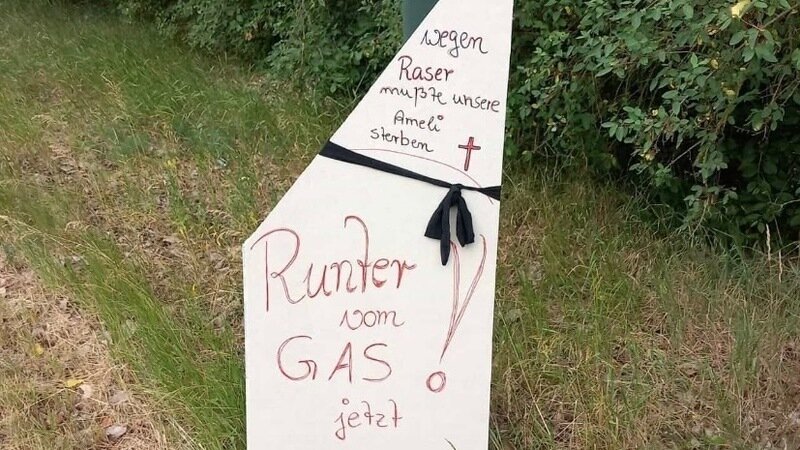 wegen
Raser
mußte unsere
Ameli
sterben
Runter
vom
GAS !
jetzt